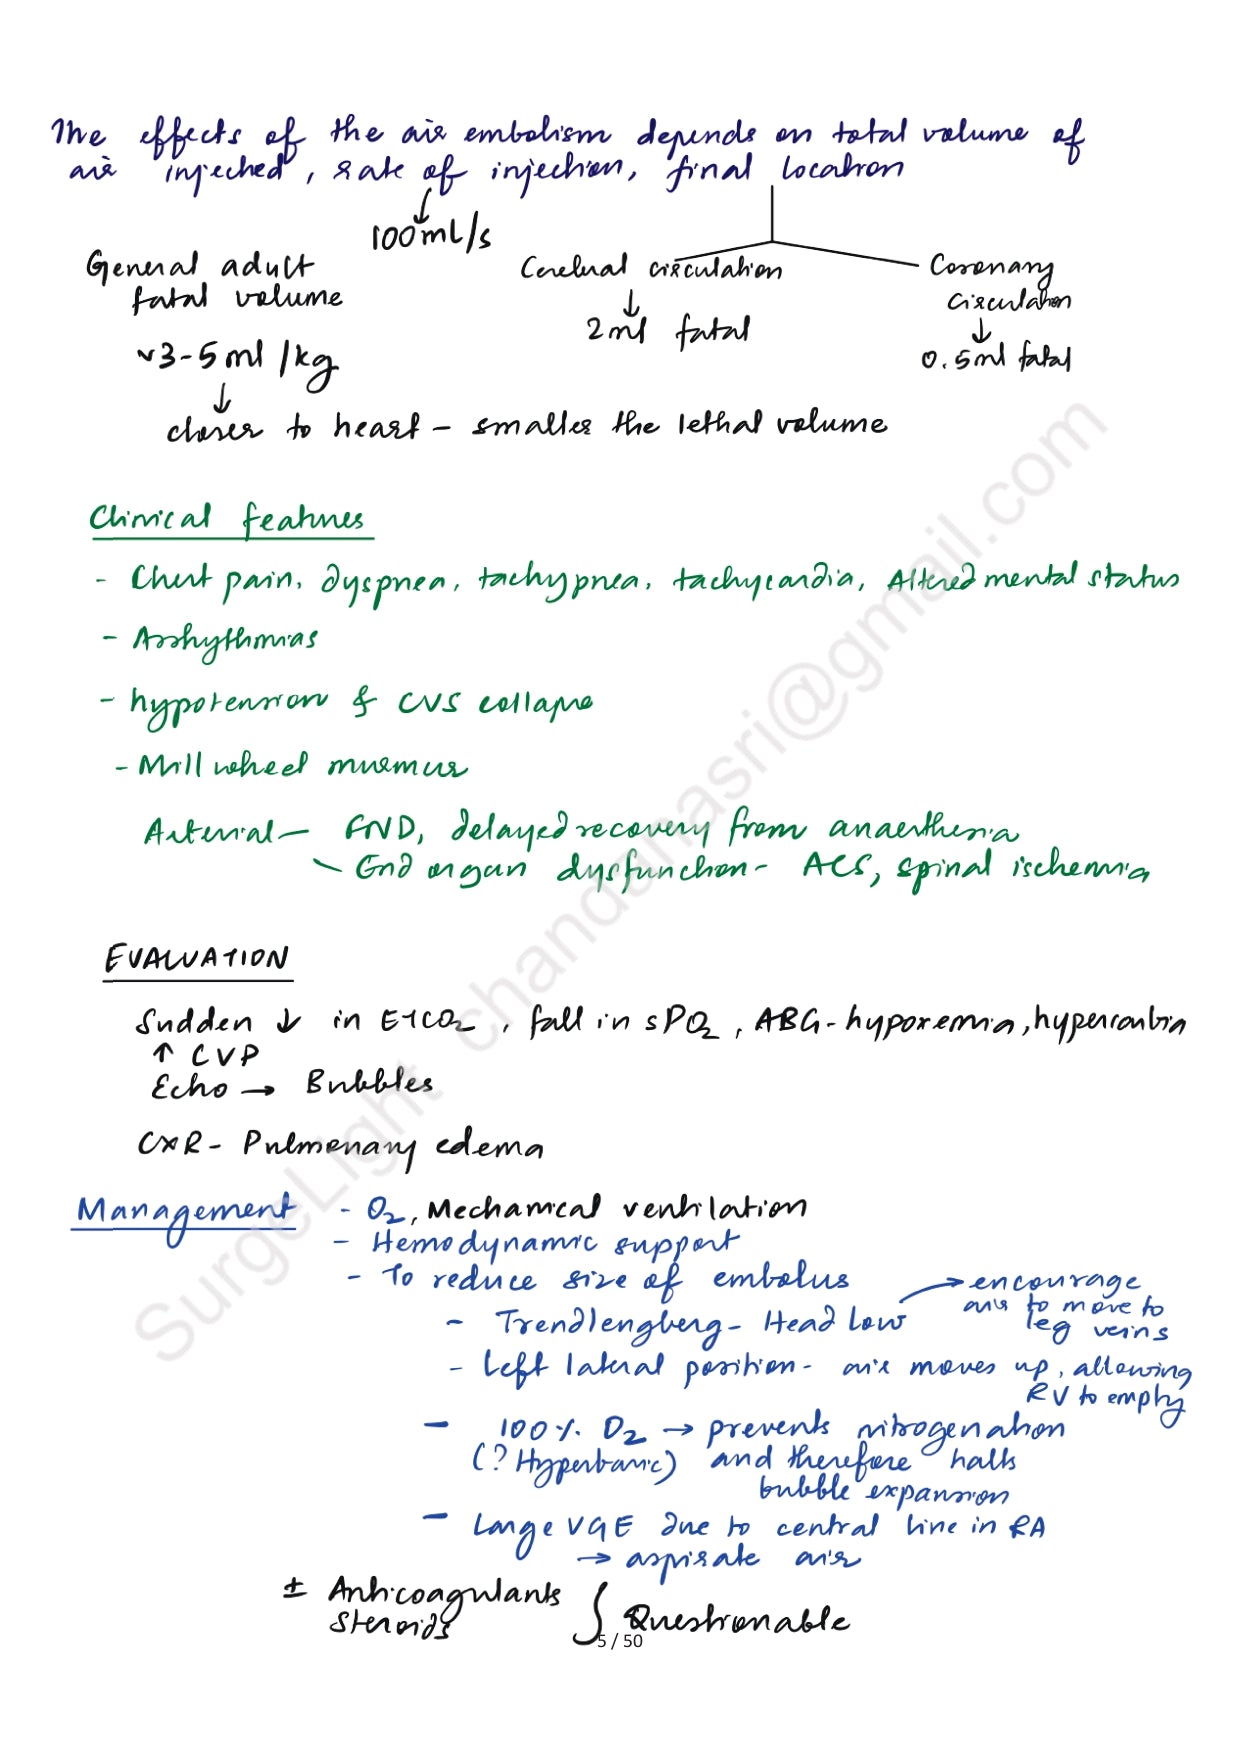 The effects of the air embolism depends on total volume of
air injected, rate of injection, final location
100mL/s
General adult
fatal volume
~3-5ml/kg
Cerebral circulation
2ml fatal
Coronary
circulation
0.5ml fatal
closer to heart - smaller the lethal volume
Clinical features
- Chest pain, dyspnea, tachypnea, tachycardia, Altered mental status
- Arrhythmias
- hypotension & CVS collapse
- Mill wheel murmur
Arterial - FND, delayed recovery from anaesthesia
- End organ dysfunction - ACS, spinal ischemia
EVALUATION
Sudden ↓ in EtCO2, fall in SPO2, ABG - hypoxemia, hypercarbia
↑ CVP
Echo → Bubbles
CXR - Pulmonary edema
Management - O2, Mechanical ventilation
- Hemodynamic support
- To reduce size of embolus
- Trendlengberg - Head Low → encourage
air to move to
leg veins
- Left lateral position - air moves up, allowing
RV to empty
- 100% O2 → prevents nitrogenation
(? Hyperbaric) and therefore halts
bubble expansion
- Large VGE due to central line in RA
→ aspirate air
± Anticoagulants
Steroids
Questionable
5 / 50
SurgeLight chandanasri@gmail.com